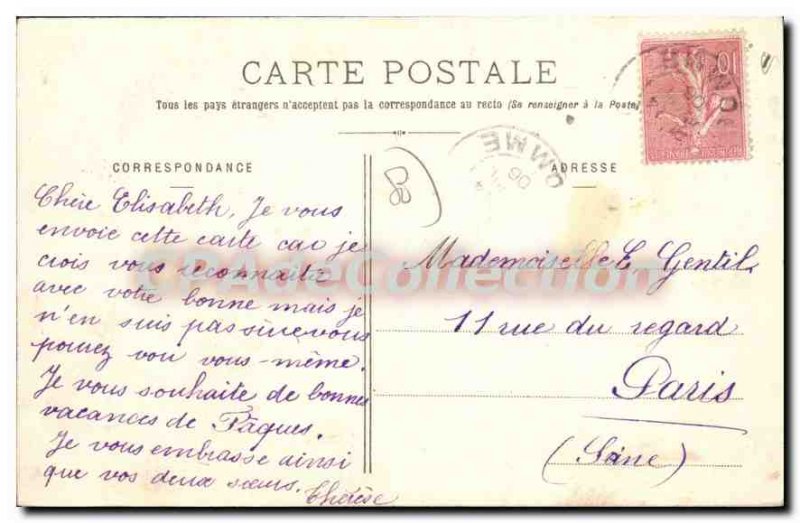 CARTE POSTALE
Tous les pays étrangers n'acceptent pas la correspondance au recto (Se renseigner à la Poste)
CORRESPONDANCE
Chère Elisabeth, Je vous
envoie cette carte car je
crois vous reconnaitre
avec votre bonne mais je
n'en suis pas sûre vous
pouvez voir vous-même.
Je vous souhaite de bonnes
vacances de Pâques.
Je vous embrasse ainsi
que vos deux sœurs.
Thérèse
ADRESSE
Mademoiselle E. Gentil
11 rue du regard
Paris
(Seine)
CPAdeCollection
10
OMME
06